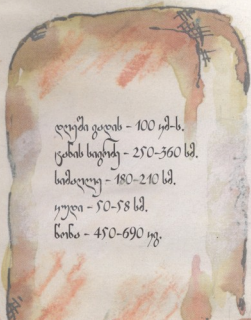 დღეში გადის - 100 კმ-ს.
ტანის სიგრძე - 250-360 სმ.
სიმაღლე - 180-210 სმ.
კუდი - 50-58 სმ.
წონა - 450-690 კგ.